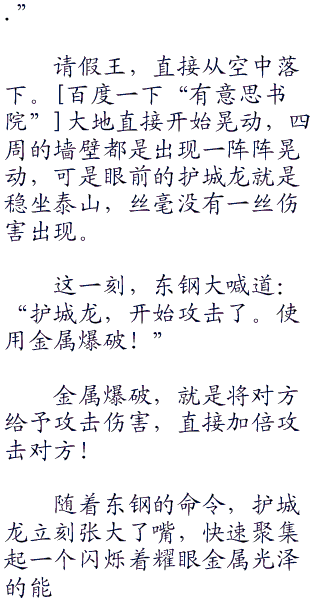 .”
请假王，直接从空中落
下。[百度一下“有意思书
院”]大地直接开始晃动，四
周的墙壁都是出现一阵阵晃
动，可是眼前的护城龙就是
稳坐泰山，丝毫没有一丝伤
害出现。
这一刻，东钢大喊道：
“护城龙，开始攻击了。使
用金属爆破！”
金属爆破，就是将对方
给予攻击伤害，直接加倍攻
击对方！
随着东钢的命令，护城
龙立刻张大了嘴，快速聚集
起一个闪烁着耀眼金属光泽
的能